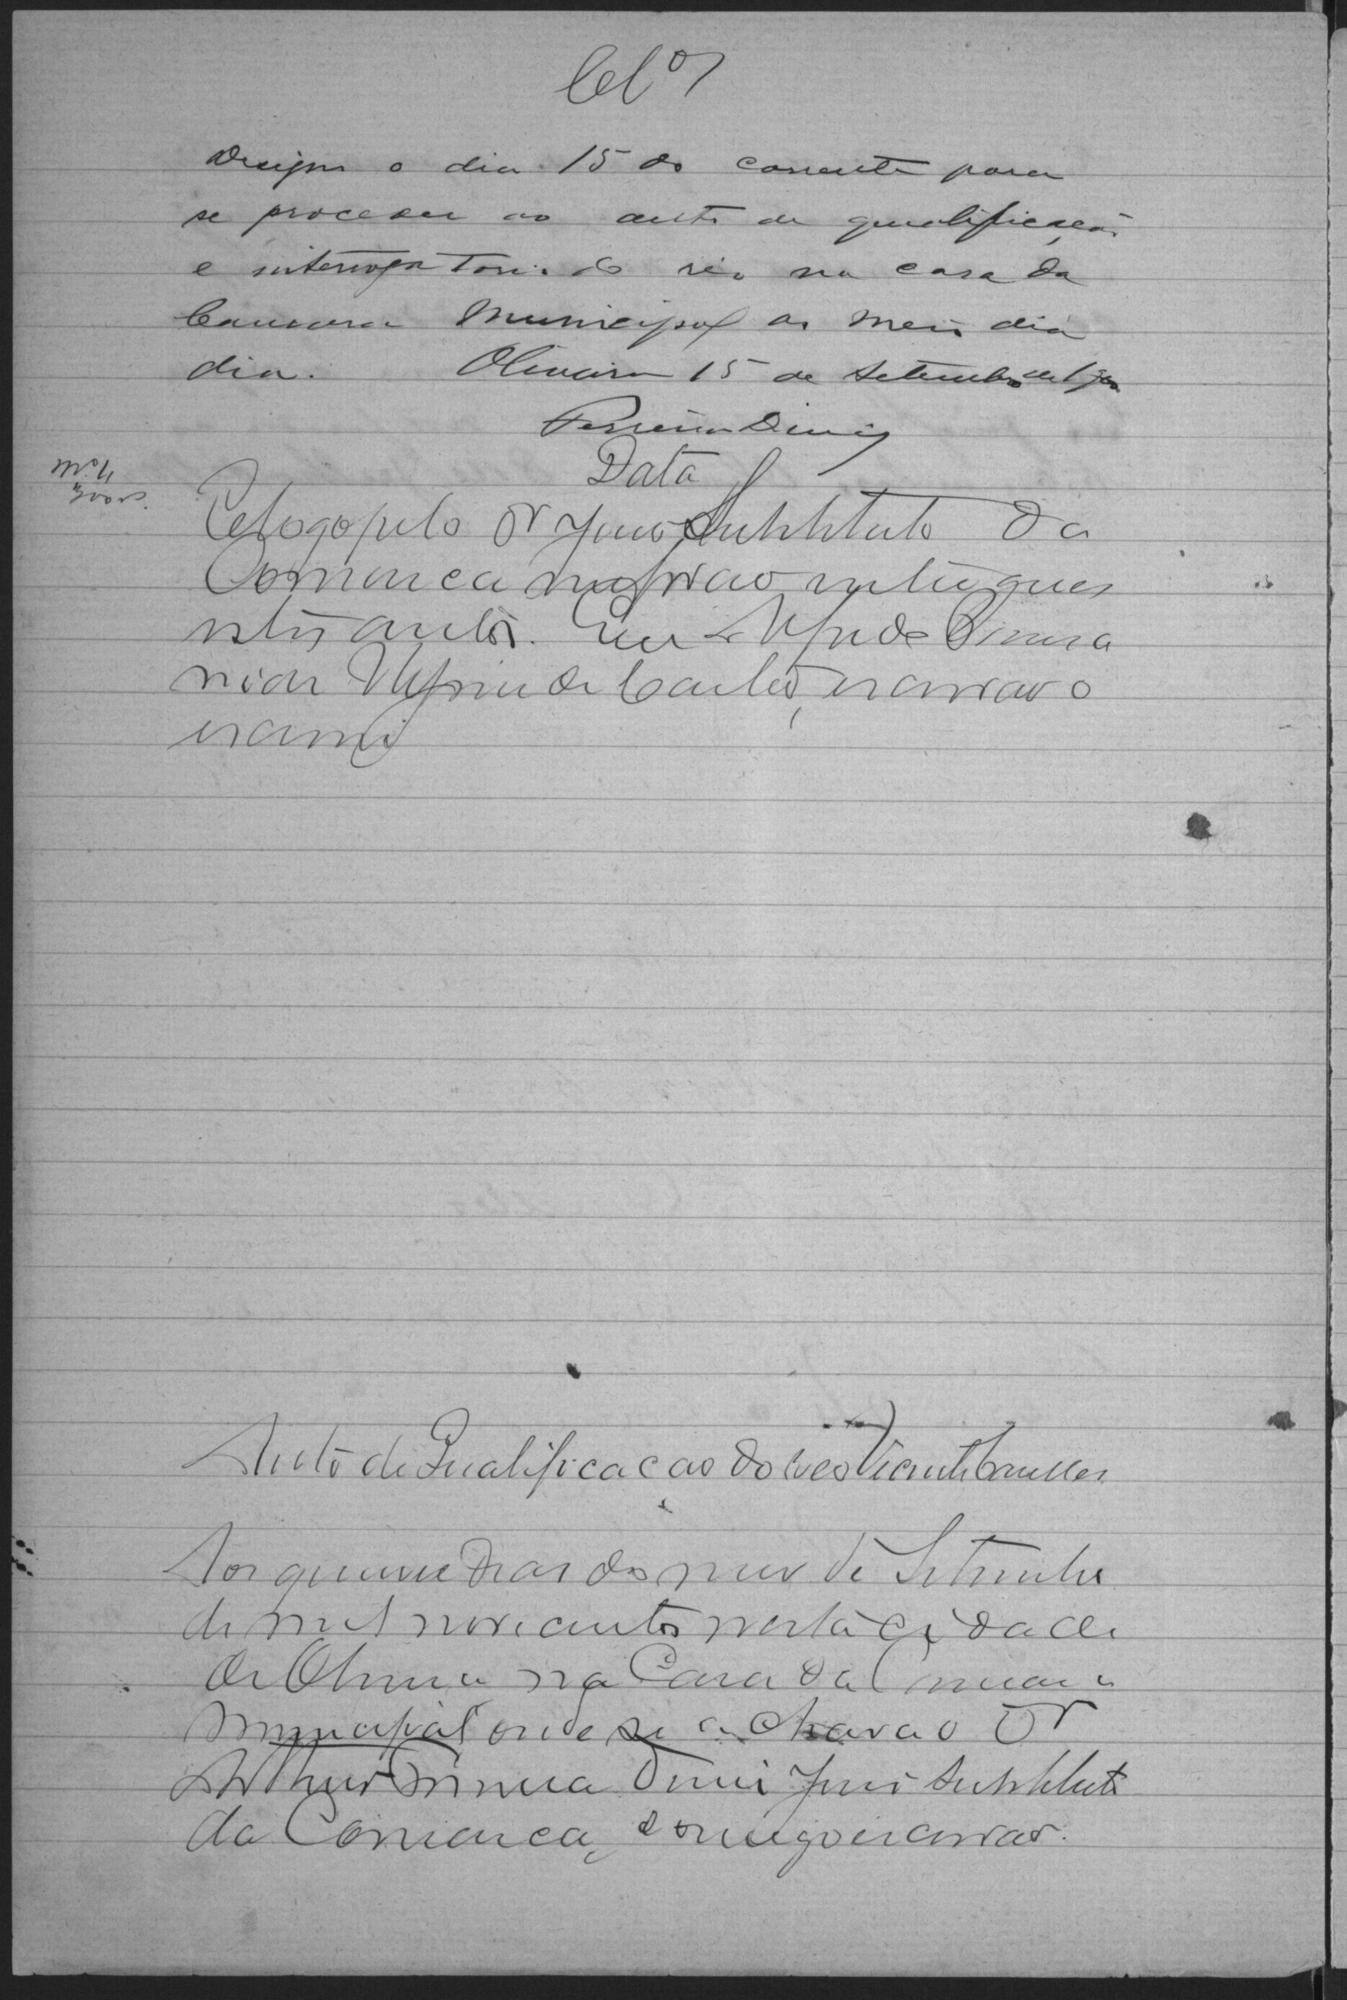 Clos
Designo o dia 15 do corrente para
se proceder ao auto de qualificação
e interrogatorio do réo na casa da
Camara Municipal as meio dia
dia. Oliveira 15 de Setembro de 1900
Ferreira Diniz
Data
E logo pelo Dr Juis Substituto da
Comarca me forao entregues
estes autos. Eu Alfredo
de Castro, escrivao o
escrevi
Auto de Qualificacao do reo Vicente
Aos quinze dias do mez de Setembro
de mil novecentos nesta cidade
de Oliveira na Casa da Camara
Municipal onde se achava o Dr
Arthur Ferreira Diniz Juis Substituto
da Comarca, comigo escrivao.